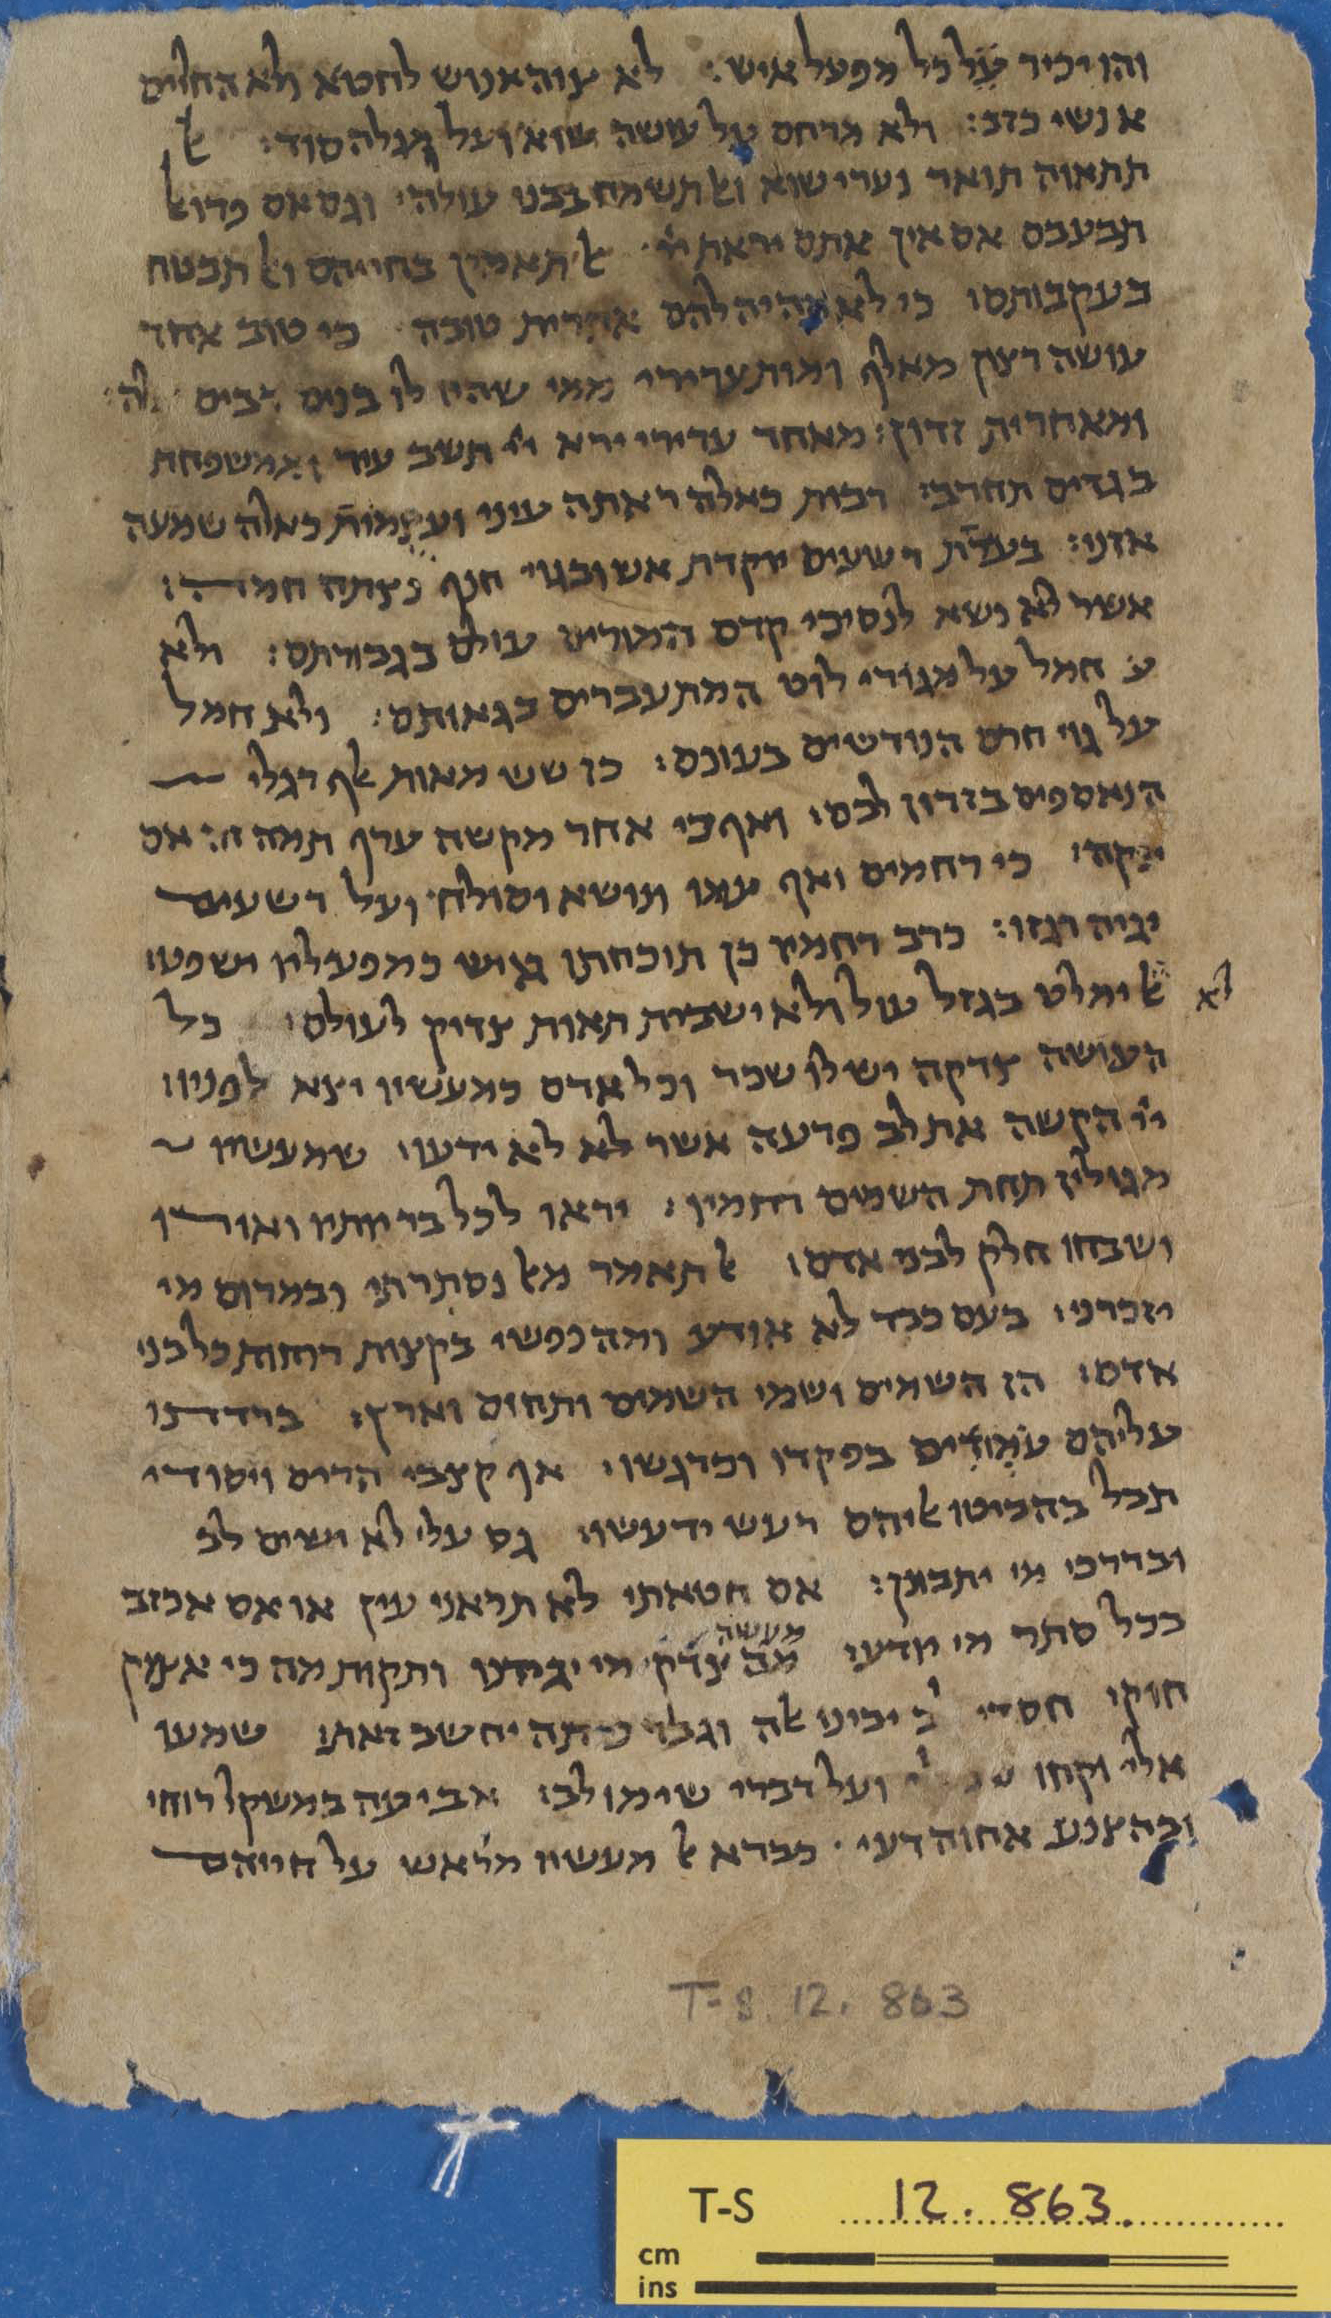 והו יכיר על כל מפעל איש: לא צוה אנוש לחטא ולא החלים
אנשי כזב: ולא מרחם על עושה שוא ועל מגלה סוד: אל
תתאוה תואר נערי שוא ואל תשמח בבני עולה: וגם אם פרו אל
תבעבם אם אין אתם יראת ייי אל תאמין בחייהם ואל תבטח
בעקבותם כי לא תהיה להם אחרית טובה כי טוב אחד
עושה רצון מאלף ומות ערירי ממי שהיו לו בנים רבים
ומאחרית זדון: מאחד ערירי ירא ייי תשב עיר וממשפחת
בגדים תחרב: רבות כאלה ראתה עיני ועצמות כאלה שמעה
אזני: בעדת רשעים יוקדת אש ובגוי חנף נצתה חמה:
אשר לא נשא לנסיכי קדם המורים עולם בגבורתם: ולא
ע חמל על מגורי לוט המתעברים בגאותם: ולא חמל
על גוי חרם הנורשים בעונם: כן שש מאות אלף רגלי
הנאספים בזדון לבם: ואף כי אחד מקשה ערף תמה זה אם
ינקה: כי רחמים ואף עמו ונושא וסולח ועל רשעים
יגיה רגזו: כרב רחמיו כן תוכחתו איש כמפעליו ישפט:
לא אל ימלט בגזל עול ולא ישבית תאות צדיק לעולם: כל
העושה צדקה יש לו שכר וכל אדם כמעשיו יצא לפניו:
ייי הקשה את לב פרעה אשר לא לא ידעו: שמעשיו
מגולין תחת השמים רחמיו: יראו לכל בריותיו ואורו
ושבחו חלק לבני אדם: אל תאמר מאל נסתרתי ובמרום מי
יזכרני: בעם כבד לא אודע ומה נפשי בקצות רוחות כל בני
אדם: הן השמים ושמי השמים ותהום וארץ: ברדתו
עליהם עמודים בפקדו וכרגשו: אף קצבי הרים ויסודי
תבל בהביטו אליהם רעש ירעשו: גם עלי לא ישים לב
ובדרכי מי יתבונן: אם חטאתי לא תראני עין או אם אכזב
בכל סתר מי יודע: מעשה מה צדק מי יגידנו ותקות מה כי אצוק
חוק: חסרי לב יבינו אלה וגבר פותה יחשב זאת: שמעו
אלי וקחו שכלי ועל דברי שימו לב: אביעה במשקל רוחי
ובהצנע אחוה דעי: כברא אל מעשיו מראש על חייהם
T-S. 12. 863
T-S 12. 863.
cm
ins